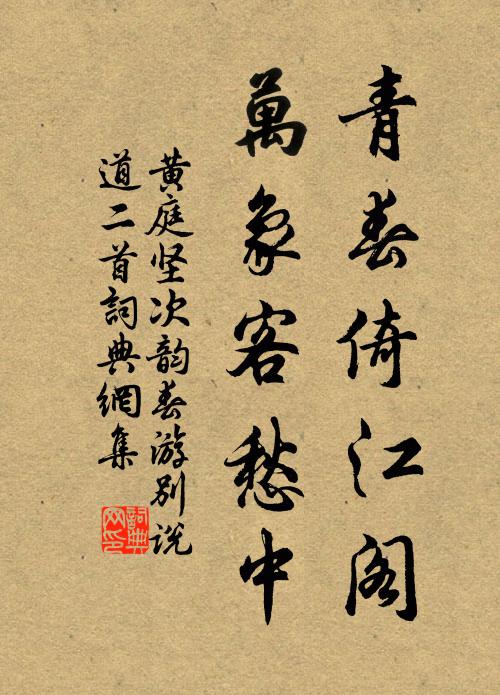 青春倚江阁
萬象客愁中
黄庭坚次韵春游别说
道二首詞典網集
詞典網印